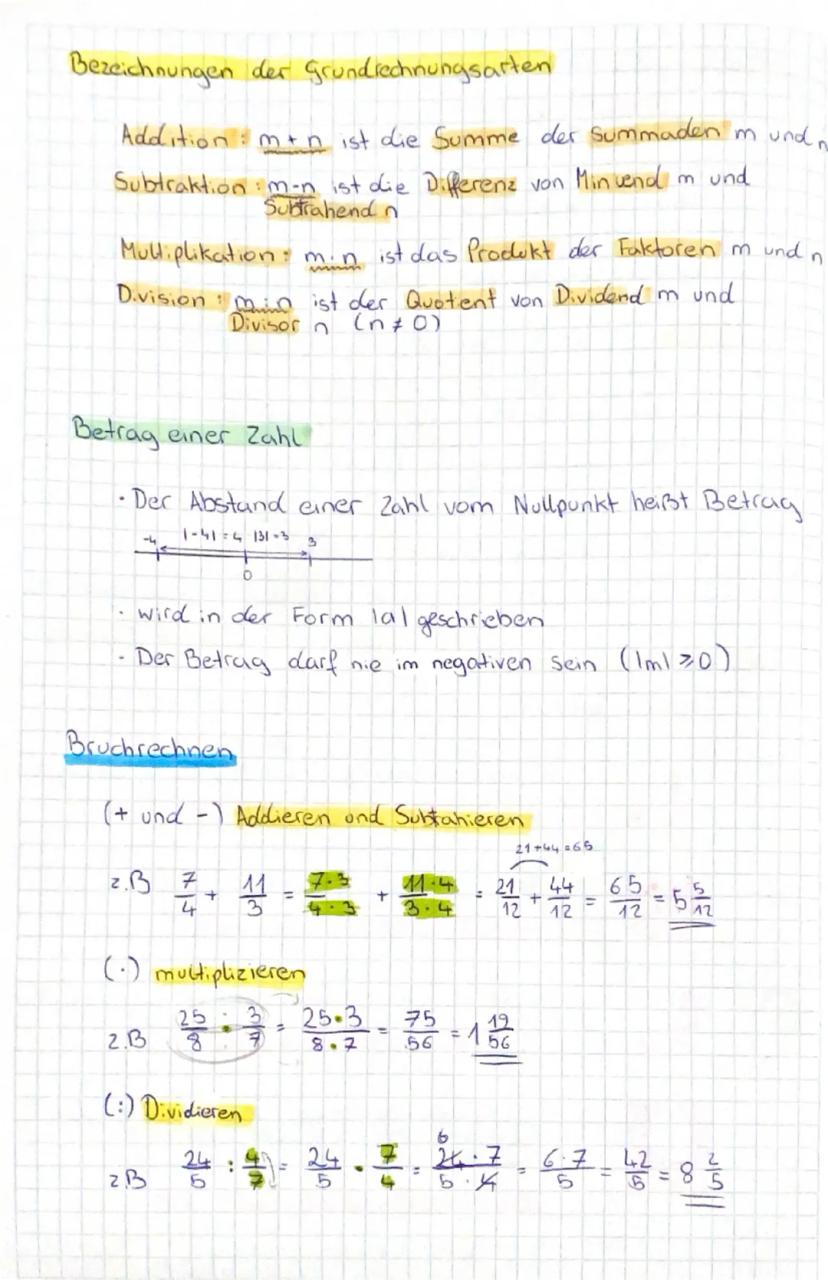 Bezeichnungen der Grundrechnungsarten
Addition: m+n ist die Summe der Summaden m und n
Subtraktion: m-n ist die Differenz von Minuend m und
Subtrahend n
Multiplikation: m·n ist das Produkt der Faktoren m und n
Division: m:n ist der Quotent von Dividend m und
Divisor n (n≠0)
Betrag einer Zahl
· Der Abstand einer Zahl vom Nullpunkt heißt Betrag
-4 |-4|=4 |3|=3 3
0
· wird in der Form |a| geschrieben
· Der Betrag darf nie im negativen sein (|m| ⩾ 0)
Bruchrechnen
(+ und -) Addieren und Subtahieren
21+44=65
z.B 7/4 + 11/3 = 7·3/4·3 + 11·4/3·4 = 21/12 + 44/12 = 65/12 = 5 5/12
(·) multiplizieren
z.B 25/8 · 3/7 = 25·3/8·7 = 75/56 = 1 19/56
(:) Dividieren
6
zB 24/5 : 4/7 = 24/5 · 7/4 = 24·7/5·4 = 6·7/5 = 42/5 = 8 2/5